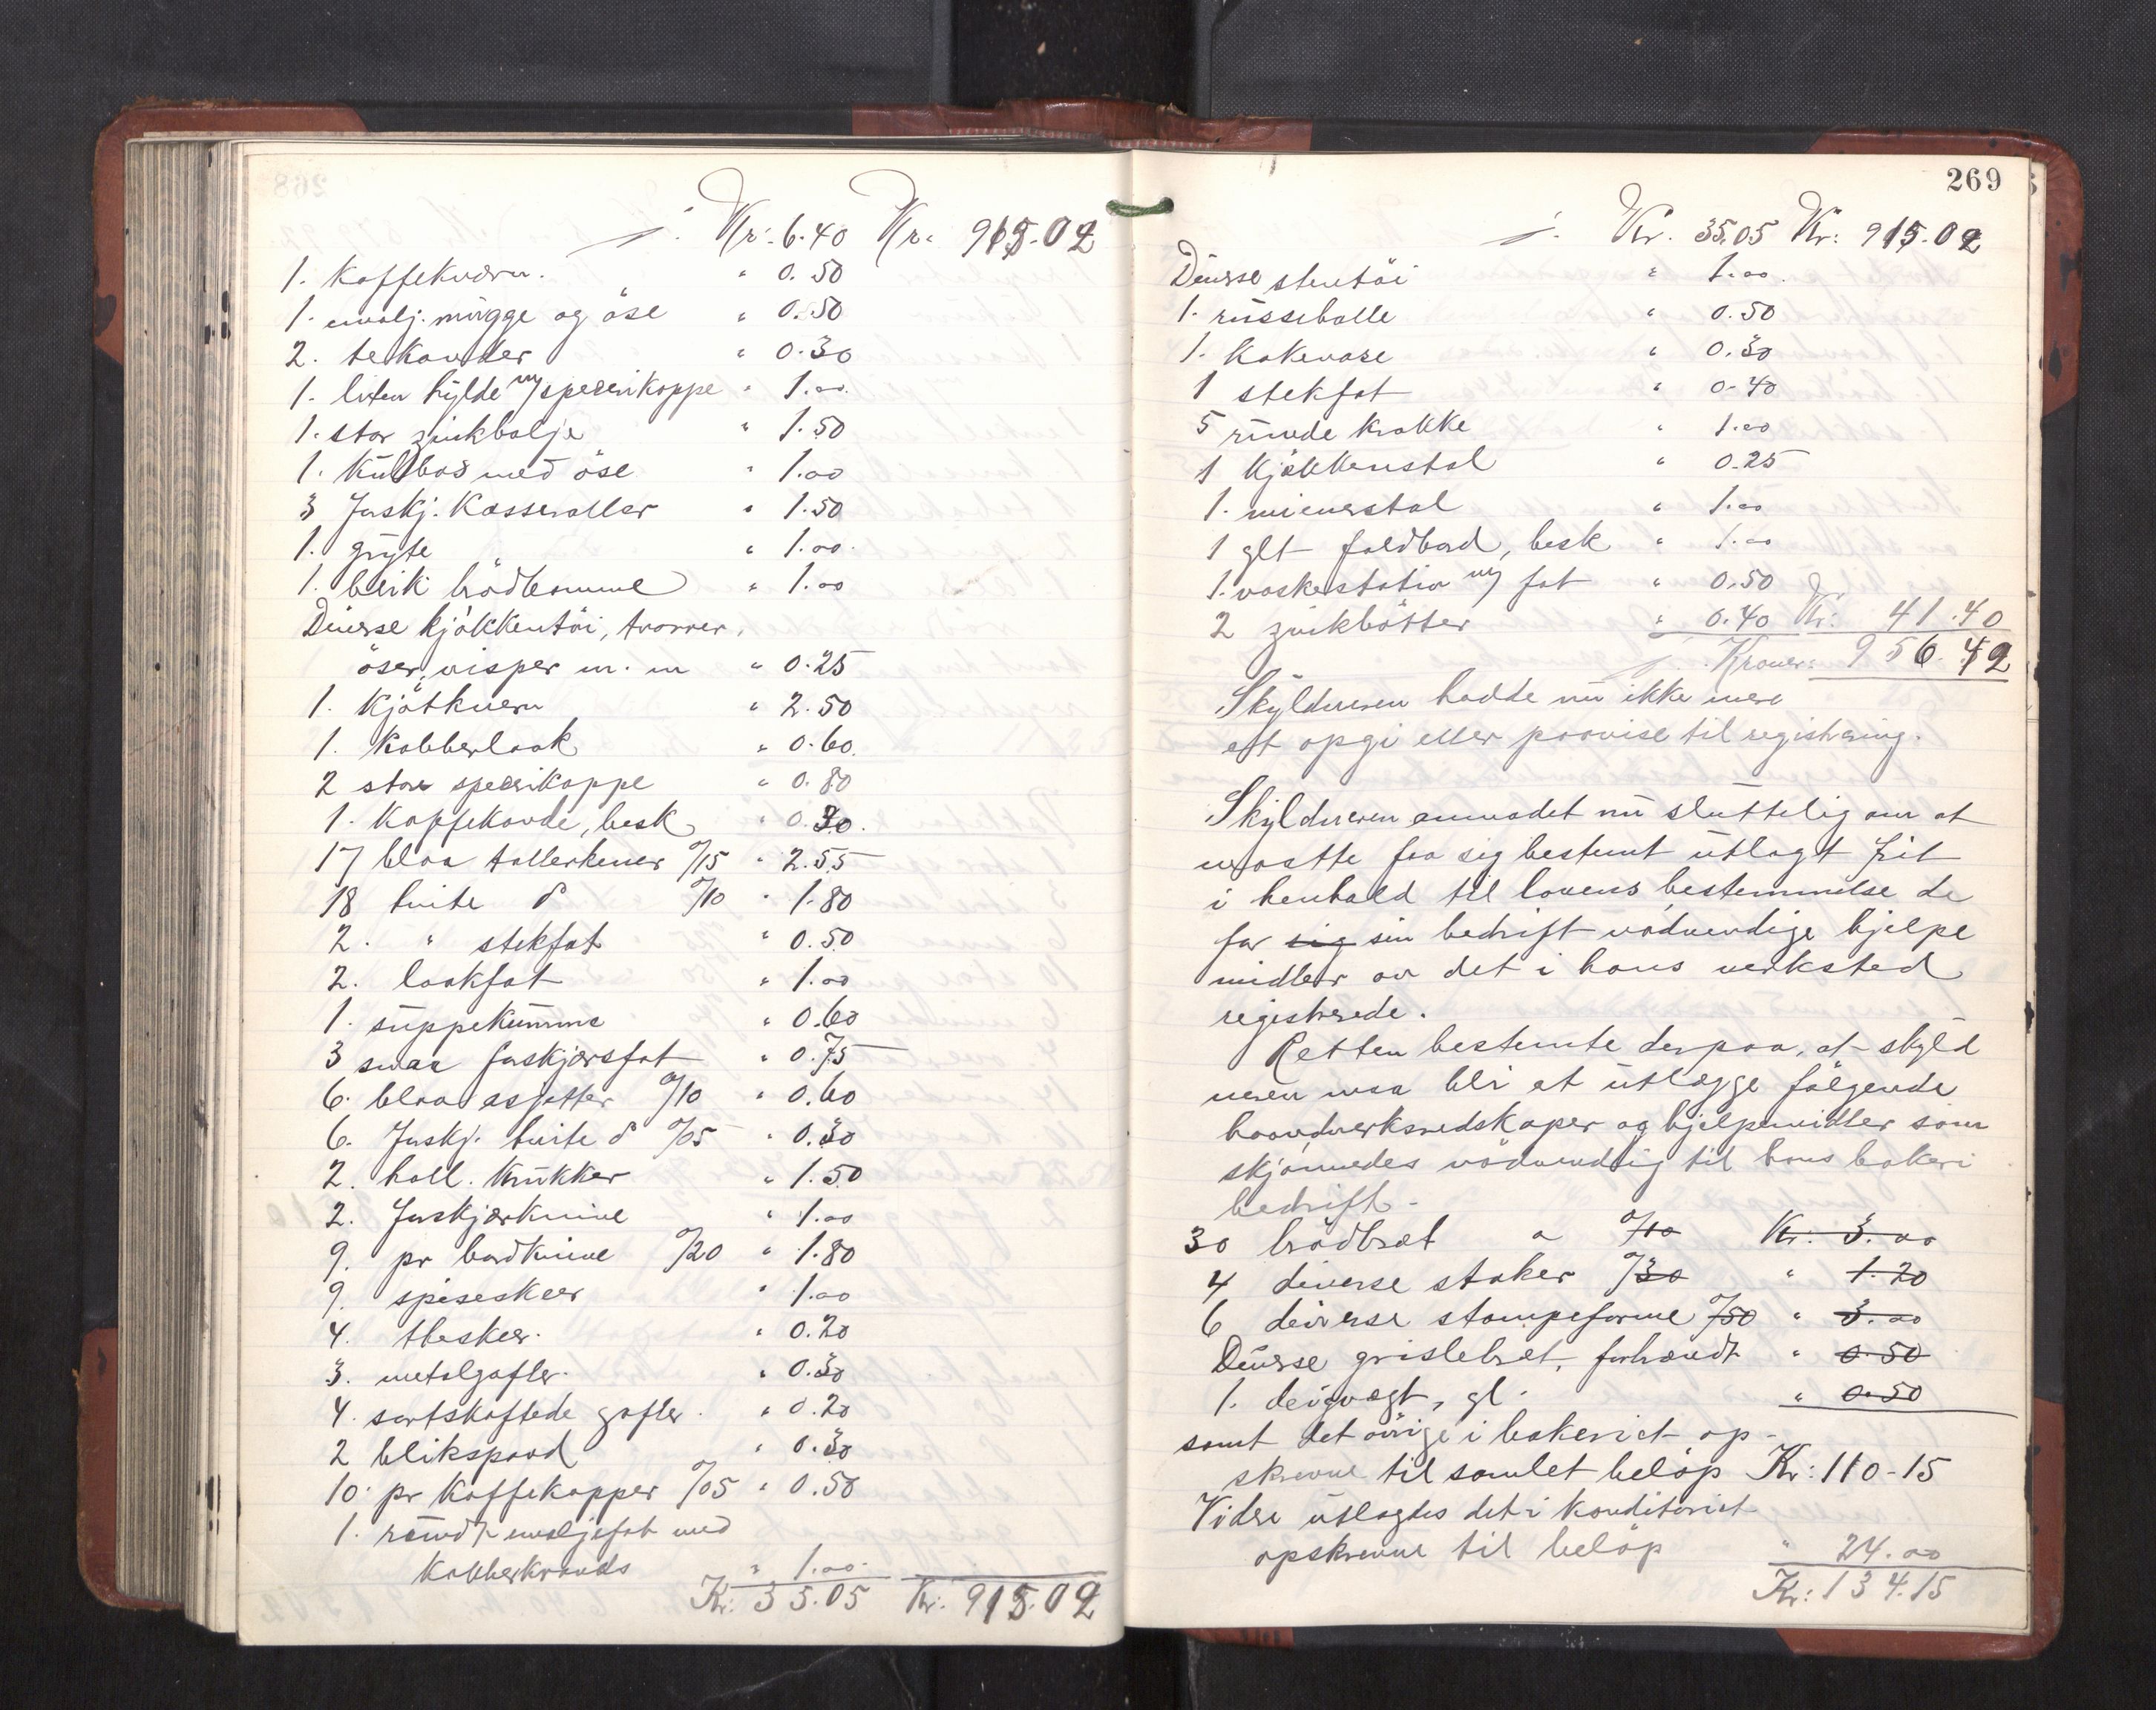 Kr: 6.40 Kr: 915.02
1. Kaffekværn. " 0.50
1. emalj. mugge og öse " 0.50
2. tekander " 0.30
1. liten hylde m/ speserikoppe " 1.00
1. stor zinkbalje " 1.50
1. Kulbos med öse " 1.00
3 forskj. Kasseroller " 1.50
1. gryte " 1.00
1. blik brödtromme " 1.00
Diverse kjökkentöi, tvorer,
öser, visper m. m " 0.25
1. Kjötkvern " 2.50
1. Kobberlaak " 0.60
2 store speserikoppe " 0.80
1. Kaffekande, besk " 0.30
17 blaa tallerkener a/15 " 2.55
18 hvite do a/10 " 1.80
2. " stekfat " 0.50
2. laakfat " 1.00
1. suppekumme " 0.60
3 smaa forskjærsfat " 0.75
6. blaa asjetter a/10 " 0.60
6. forskj. hvite do a/05 " 0.30
2. holl. Krukker " 1.50
2. forskjærknive " 1.00
9. pr bordknive a/20 " 1.80
9. spiseskeer " 1.00
4. theskeer. " 0.20
3. metalgafler. " 0.30
4. sortskaftede gafler. " 0.20
2 blikspand " 0.30
10. pr Kaffekopper a/05 " 0.50
1. rundt emaljefat med
Kobberkrands " 1.00
Kr: 35.05 Kr: 915.02
269
Kr. 35.05 Kr: 915.02
Diverse stentöi " 1.00
1. russebolle " 0.50
1. Kakevase " 0.30
1 stekfat " 0.40
5 runde krakke " 1.00
1 Kjökkenstol " 0.25
1. wienerstol " 1.00
1 glt foldbord, besk " 1.00
1. vaskestativ m/ fat " 0.50
2 zinkbötter " 0.40 Kr: 41.40
Kroner: 956.42
Skyldneren hadde nu ikke mere
at opgi eller paavise til registrering.
Skyldneren anmodet nu sluttelig om at
maatte faa sig bestemt utlagt frit
i henhold til lovens bestemmelse de
for sig sin bedrift nödvendige hjelpe
midler av det i hans verksted
registrerede.
Retten bestemte derpaa, at skyld
neren maa bli at utlægge fölgende
haandverksredskaper og hjelpemidler som
skjönnedes nödvendig til hans bakeri
bedrift.
30 brödbræt a a/10 Kr: 3.00
4 diverse staker a/30 " 1.20
6 diverse stampeforme a/50 " 3.00
Diverse grislebræt, forhændt " 0.50
1. deigvægt, gl. " 0.50
samt det övrige i bakeriet op-
skrevne til samlet belöp Kr: 110-15
Videre utlagdes det i konditoriet
opskrevne til belöp " 24.00
Kr: 134.15